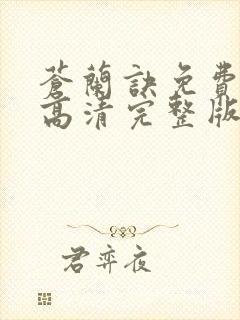 蒼蘭訣免費
高清完整版
君弈夜